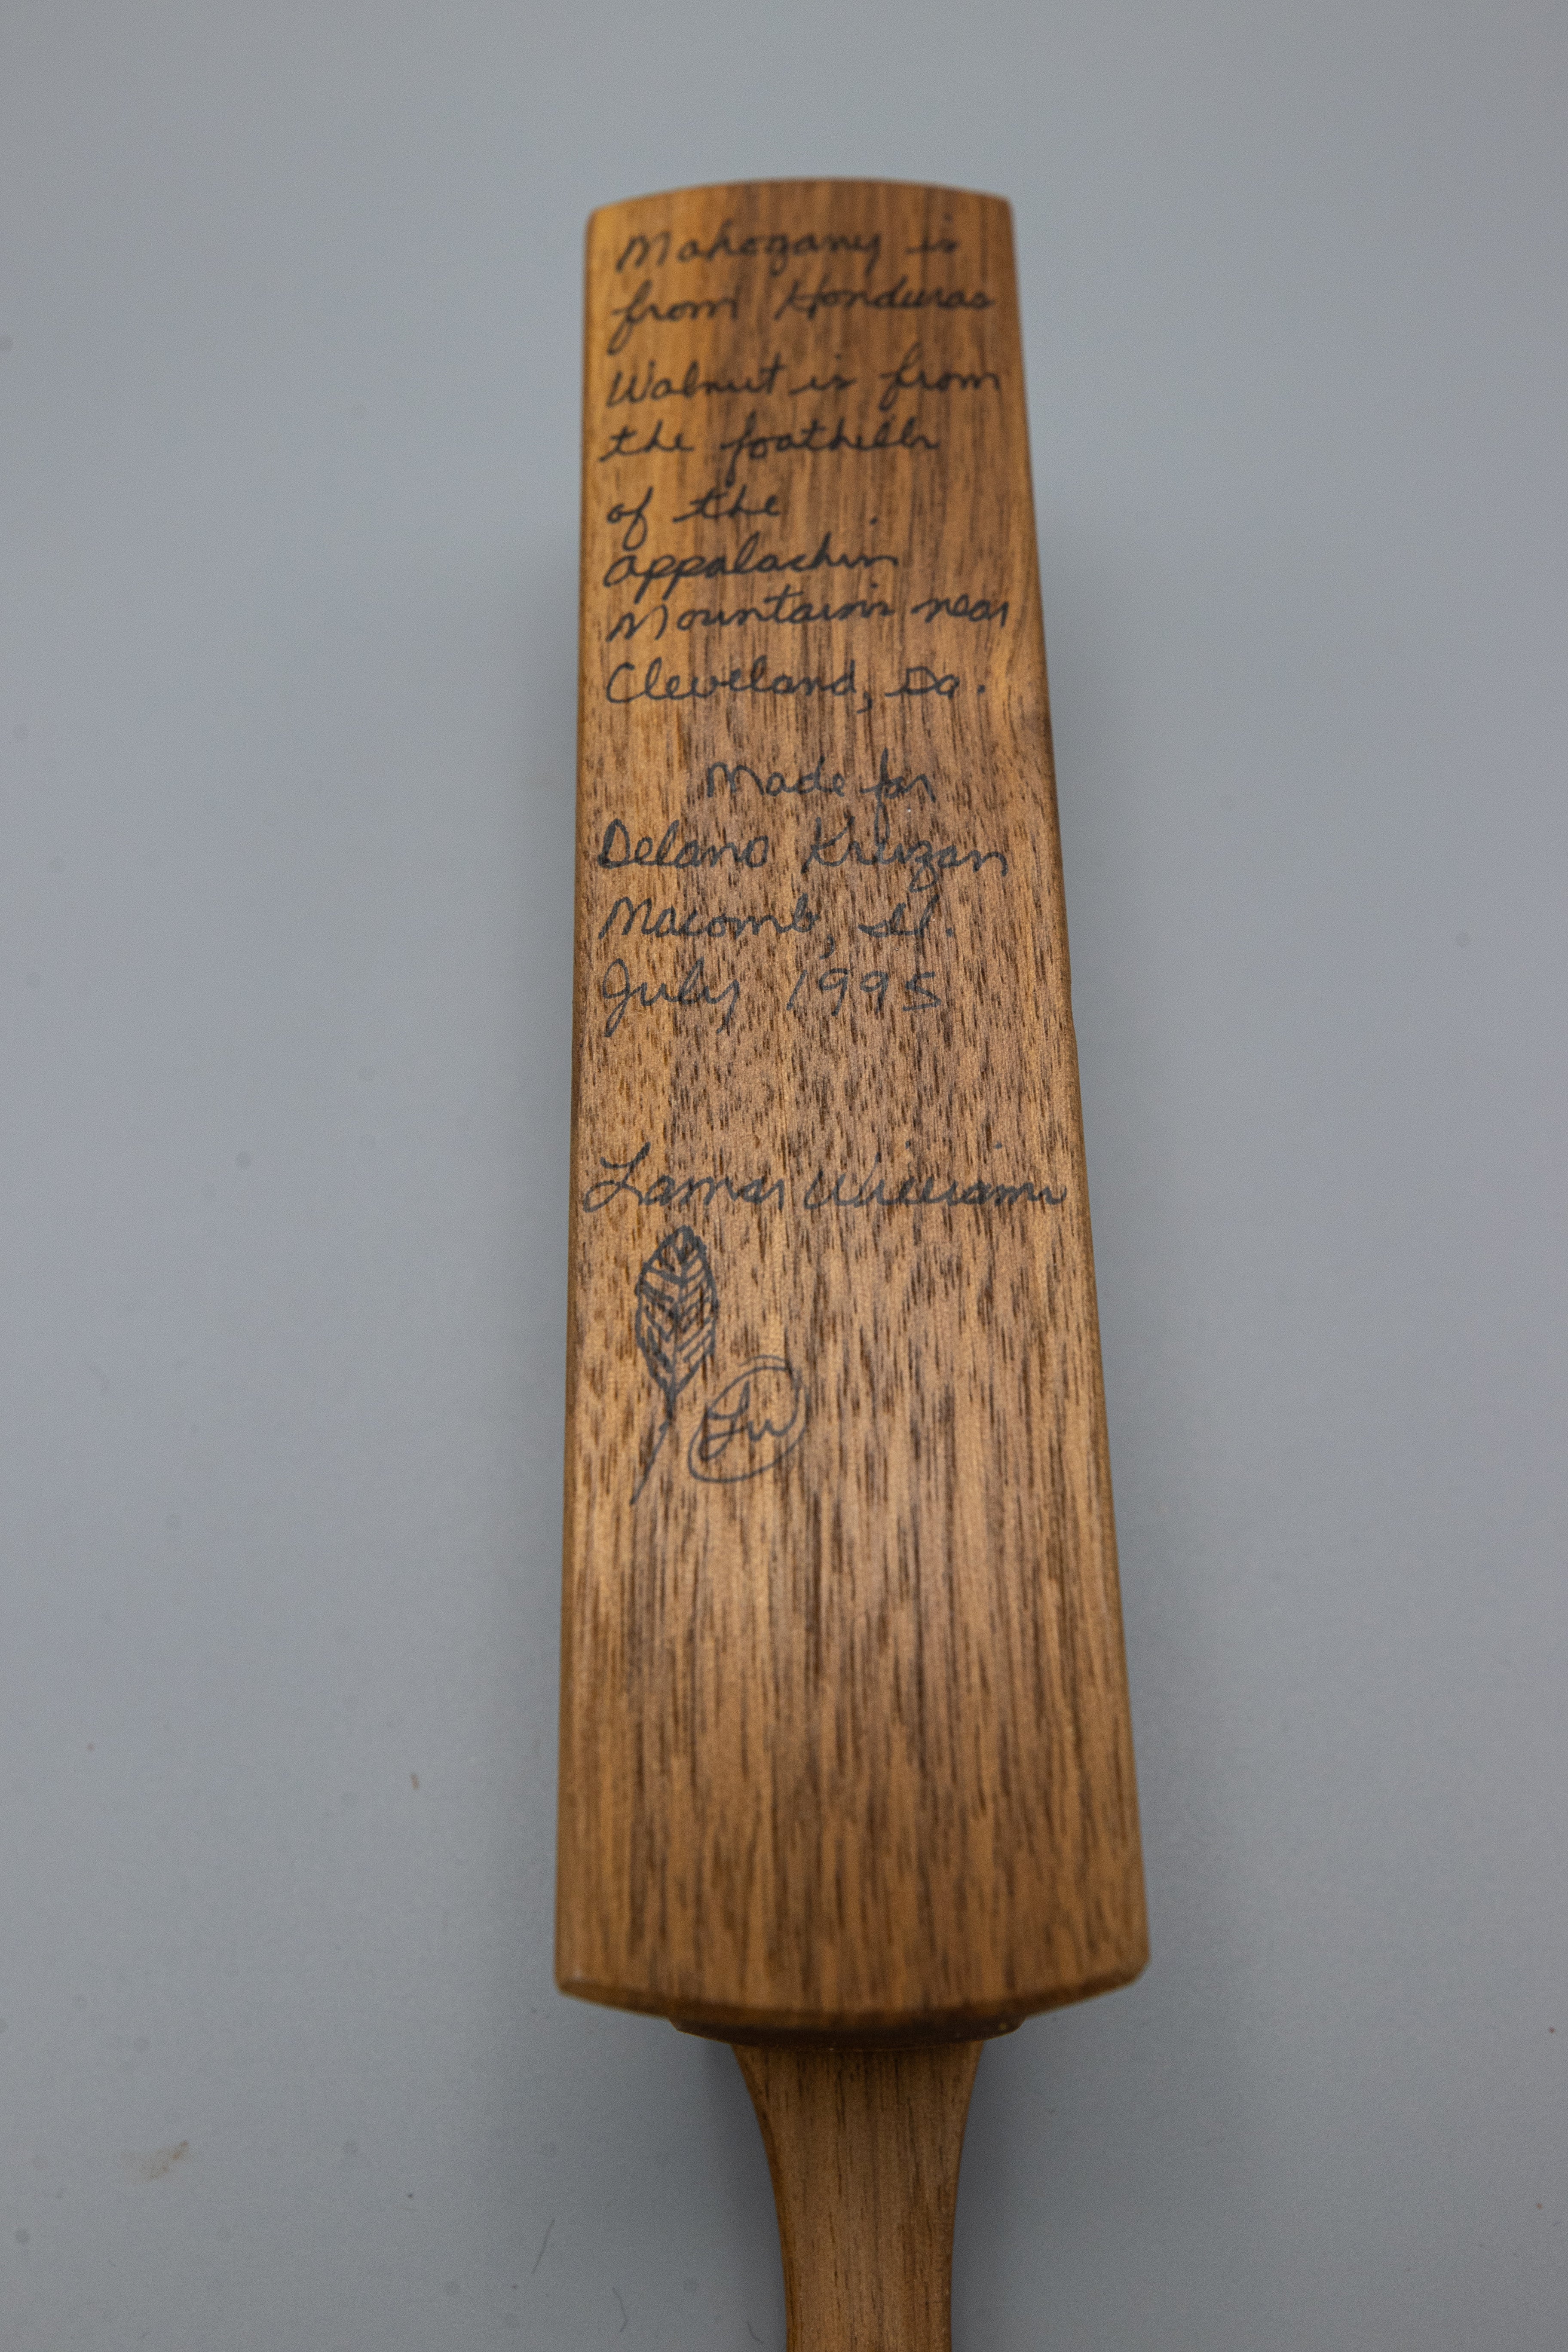 Mahogany is
from Honduras
Walnut is from
the foothills
of the
appalachin
Mountains near
Cleveland, Ga.
Made for
Delano Kruzan
Macomb, Il.
July 1995
Lamar Williams
LW